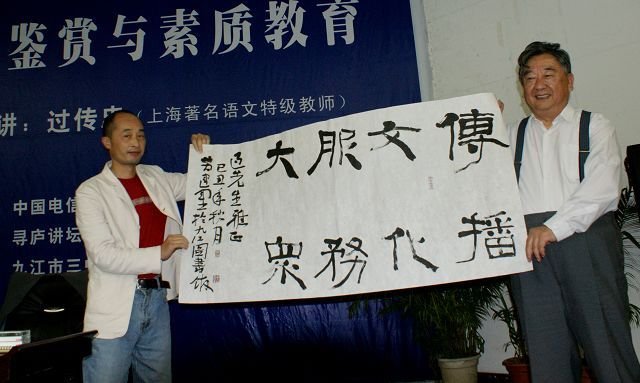 鉴赏与素质教育
讲：过传（上海著名语文特级教师）
中国电信
寻庐讲坛
九江市三
傳播
文化
服務
大眾
先生雅正
己丑年秋月
於九江圖書馆